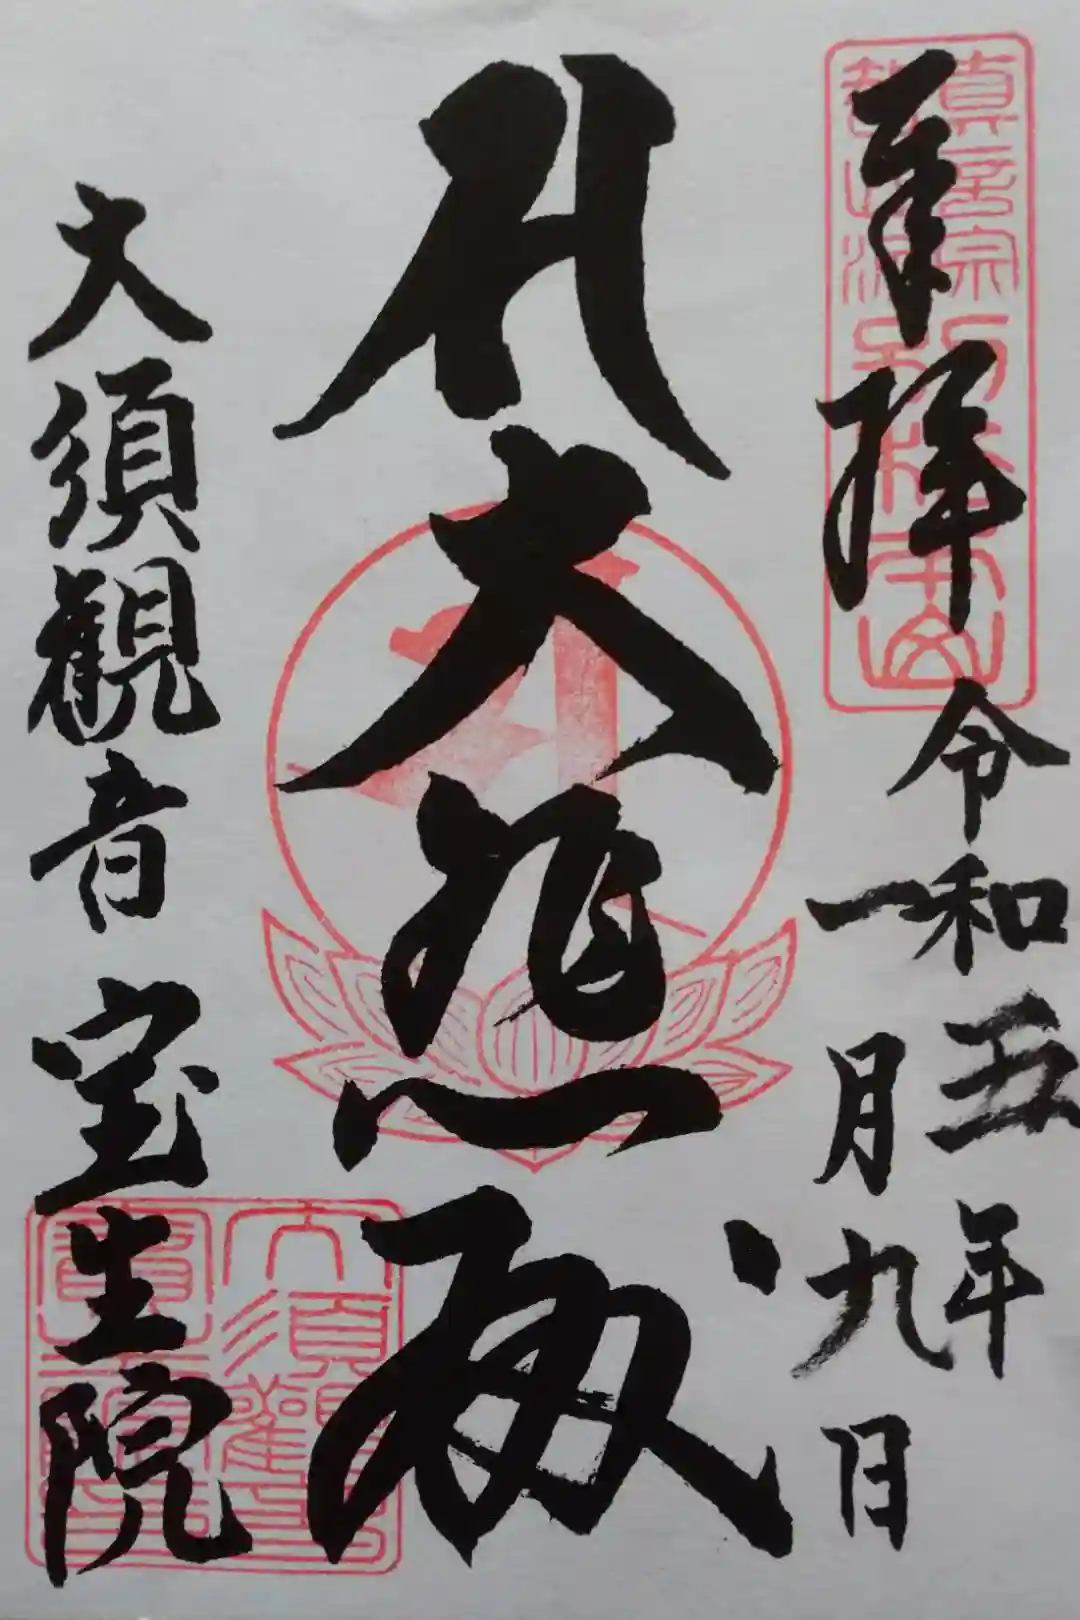 奉拝
令和五年
一月九日
大悲殿
大須観音
宝生院
真言宗
智山派
別格本山
大須観音
寶生院